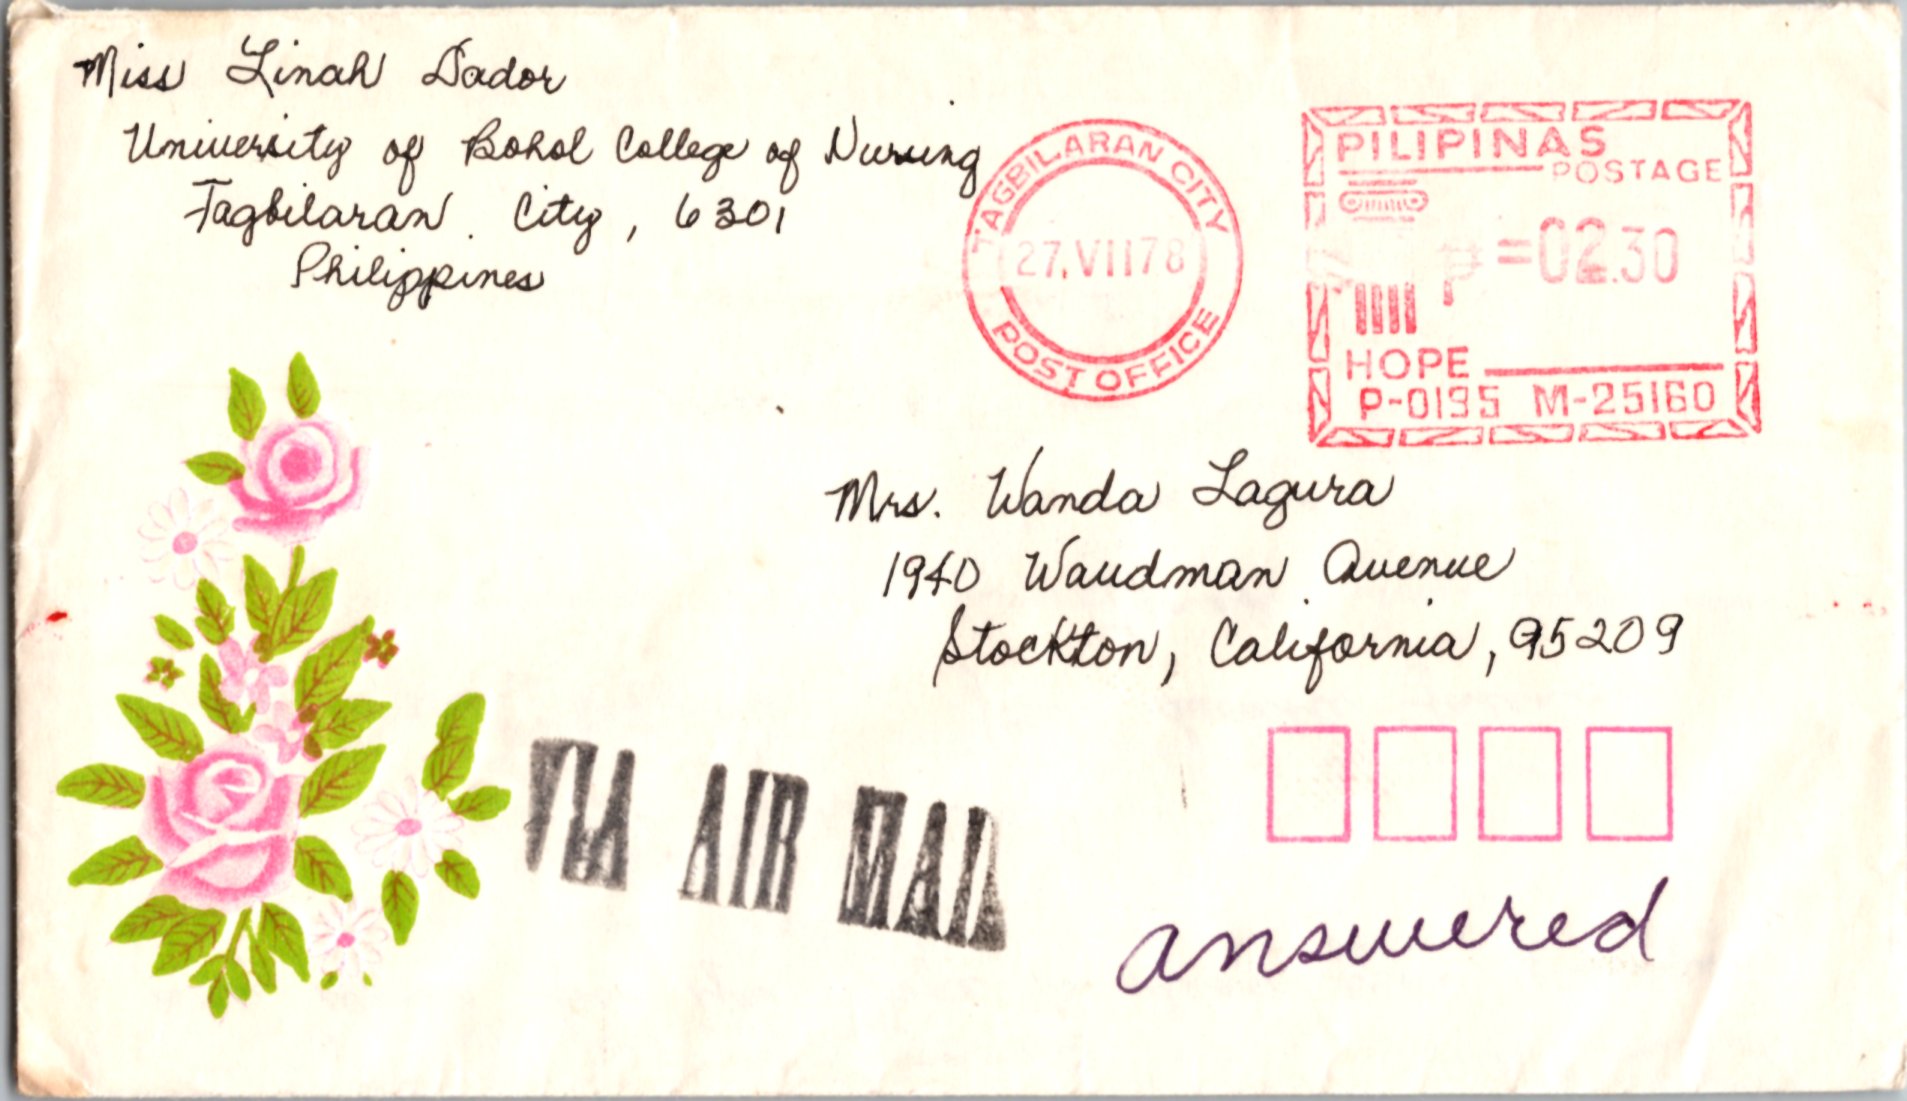 Miss Linah Dador
University of Bohol College of Nursing
Tagbilaran City, 6301
Philippines
TAGBILARAN CITY
27.VII78
POST OFFICE
PILIPINAS
POSTAGE
P=02.30
HOPE
P-0195 M-25160
Mrs. Wanda Lagura
1940 Waudman Avenue
Stockton, California, 95209
VIA AIR MAIL
answered